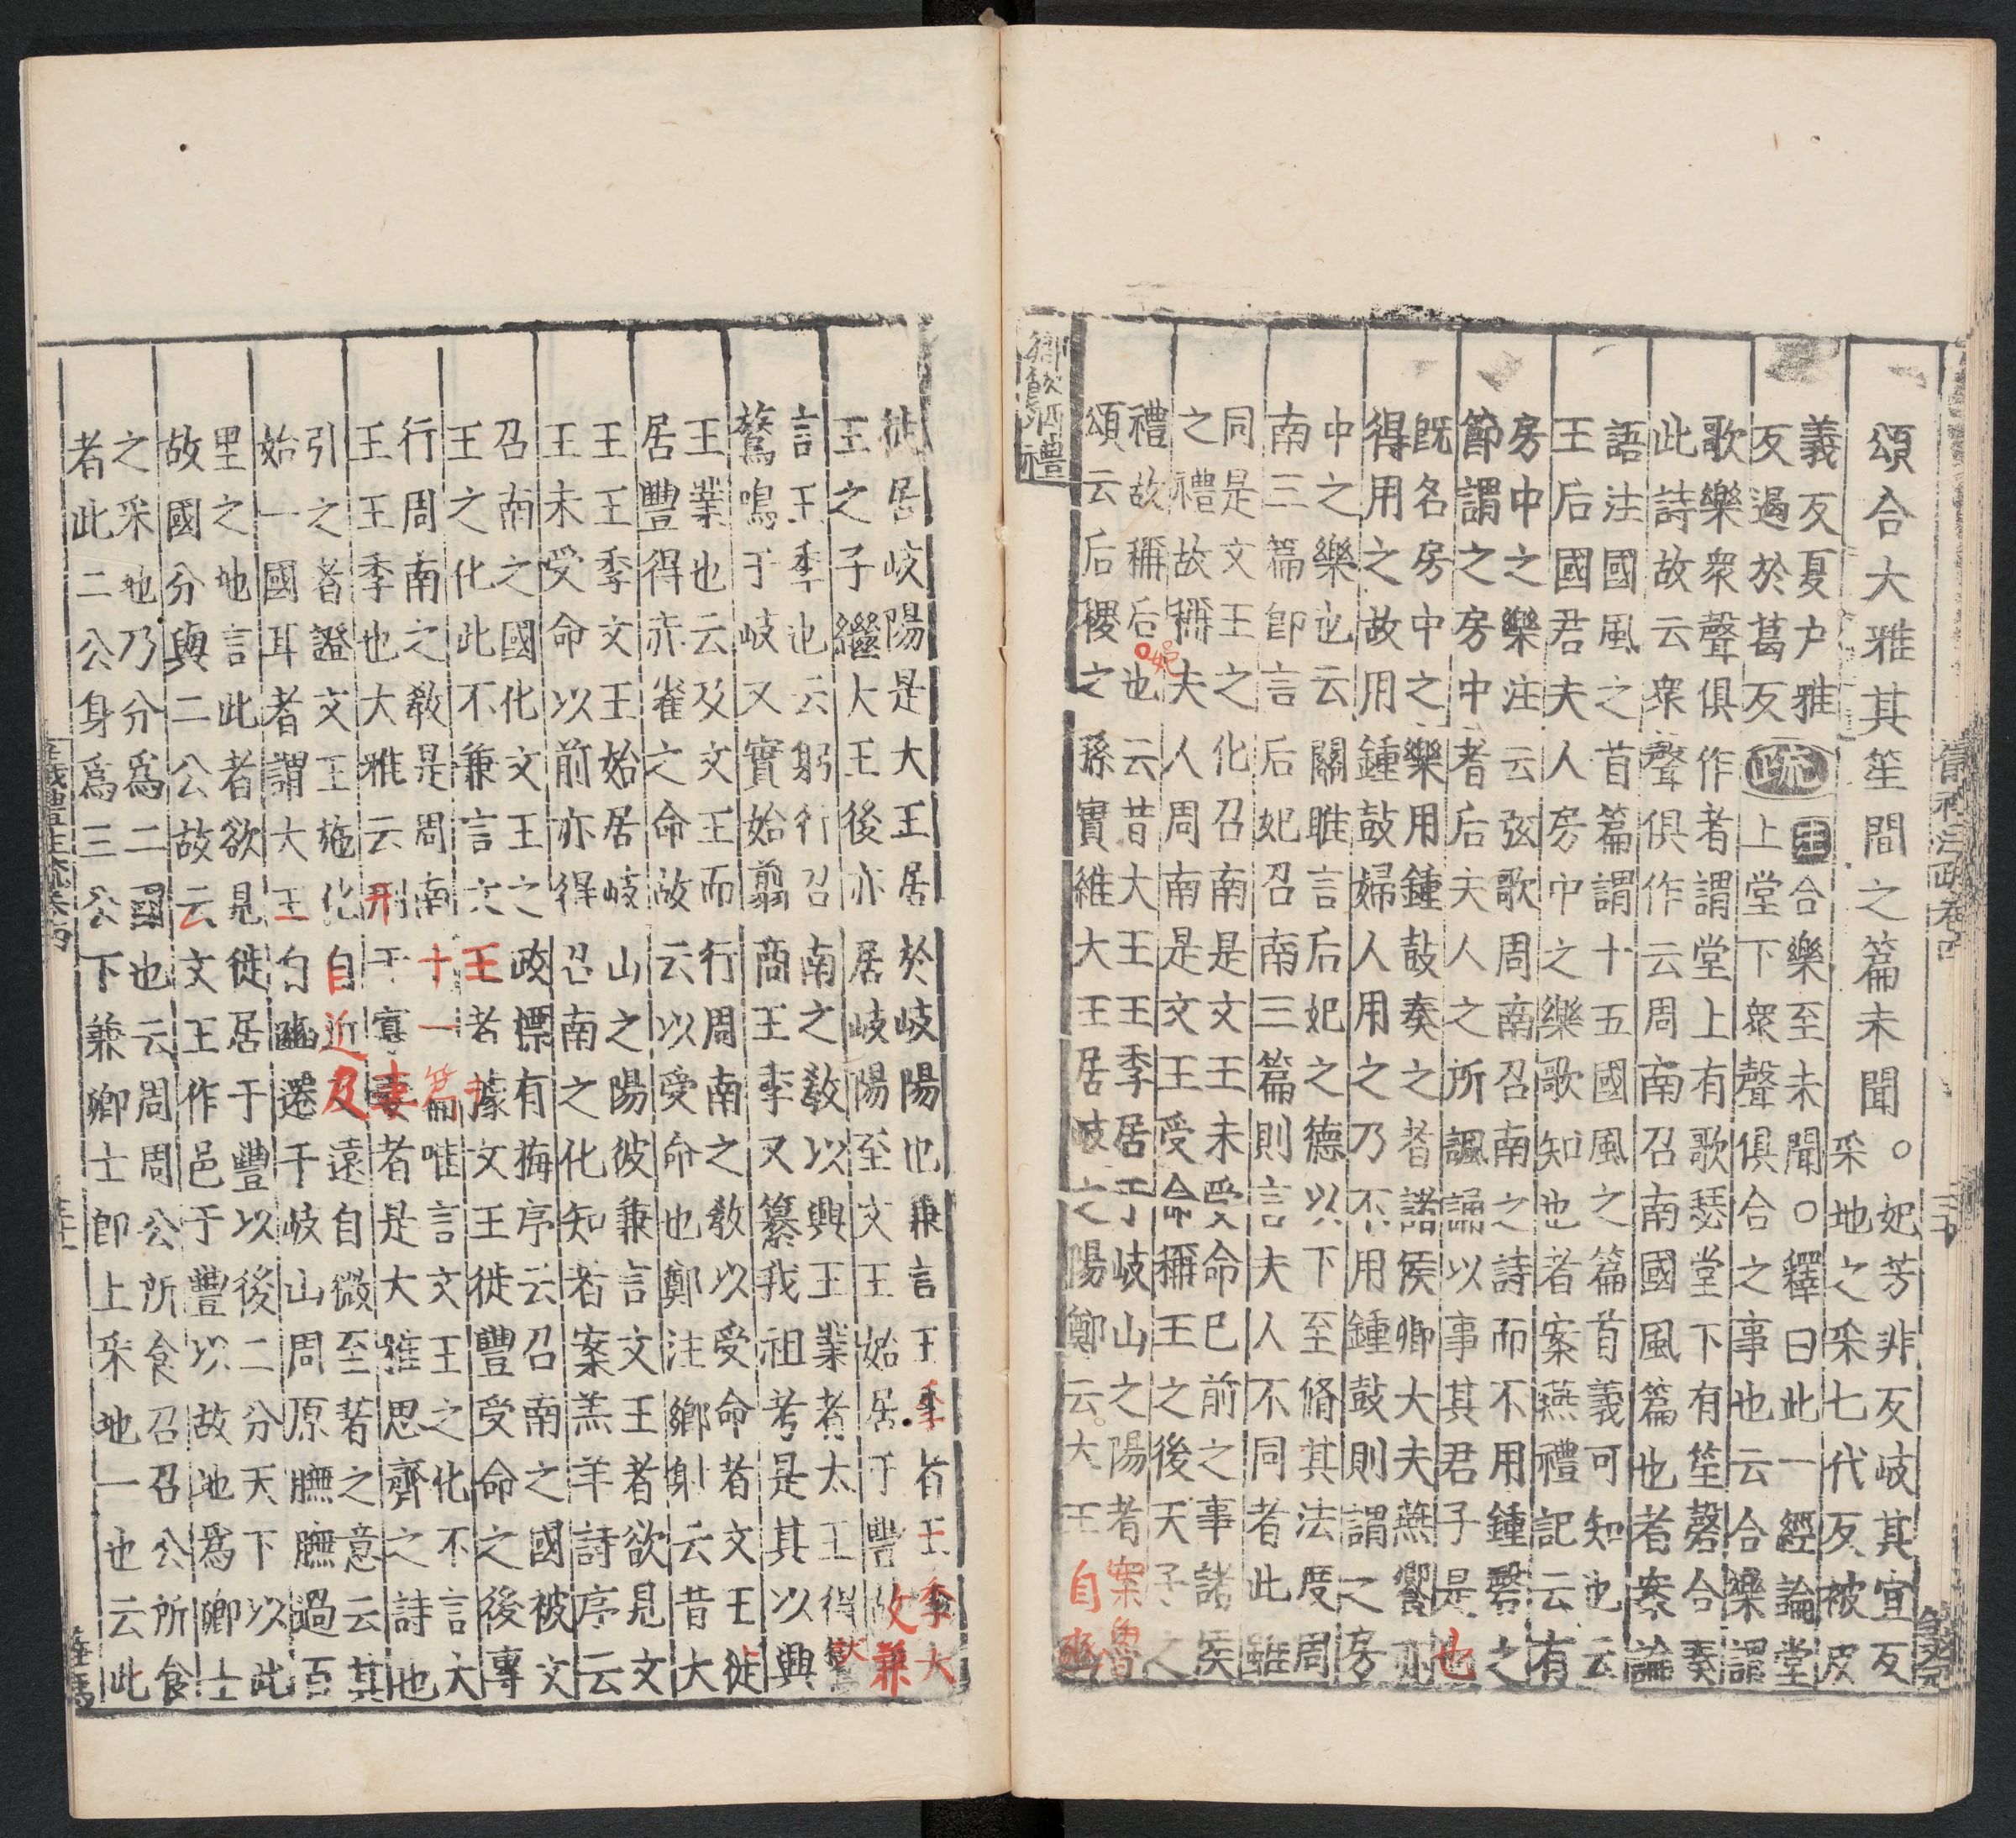 頌合大雅其笙間之篇未聞。妃芳非反岐其宜反
采地之采七代反被皮
義反夏户雅
反遏於葛反
疏
注合樂至未聞○釋曰此一經論堂
上堂下衆聲俱合之事也云合樂謂
歌樂衆聲俱作者謂堂上有歌瑟堂下有笙磬合奏
此詩故云衆聲俱作云周南召南國風篇也者案論
語注國風之首篇謂十五國風之篇首義可知也云
王后國君夫人房中之樂歌知也者案燕禮記云有
房中之樂注云弦歌周南召南之詩而不用鍾磬之
節謂之房中者后夫人之所諷誦以事其君子是也
既名房中之樂用鍾鼓奏之者諸侯卿大夫燕饗亦
得用之故用鍾鼓婦人用之乃不用鍾鼓則謂之房
中之樂也云關雎言后妃之德以下至脩其法度周
南三篇即言后妃召南三篇則言夫人不同者此雖
同是文王之化召南是文王未受命已前之事諸侯
之禮故稱夫人周南是文王受命稱王之後天子之
禮故稱后也云昔大王王季居于岐山之陽者案魯
頌云后稷之孫實維大王居岐之陽鄭云大王自豳
鄉飲酒禮
徙居岐陽是大王居於岐陽也兼言王季者王季大
王之子繼大王後亦居岐陽至文王始居于豐故兼
言王季也云躬行召南之教以興王業者太王得
鷟鳴于岐又實始翦商王季又纂我祖考是其以興
王業也云及文王而行周南之教以受命者文王徙
居豐得赤雀之命故云以受命也鄭注鄉射云昔大
王王季文王始居岐山之陽彼兼言文王者欲見文
王未受命以前亦得召南之化知者案羔羊詩序云
召南之國化文王之政摽有梅序云召南之國被文
王之化此不兼言文王者據文王徙豐受命之後專
行周南之教是周南十一篇唯言文王之化不言大
王王季也大雅云刑于寡妻者是大雅思齊之詩也
引之者證文王施化自近及遠自微至著之意云其
始一國耳者謂大王自豳遷于岐山周原膴膴過百
里之地言此者欲見徙居于豐以後二分天下以此
故國分與二公故云文王作邑于豐以故地爲卿士
之采地乃分爲二國也云周周公所食召召公所食
者此二公身爲三公下兼卿士即上采地一也云此